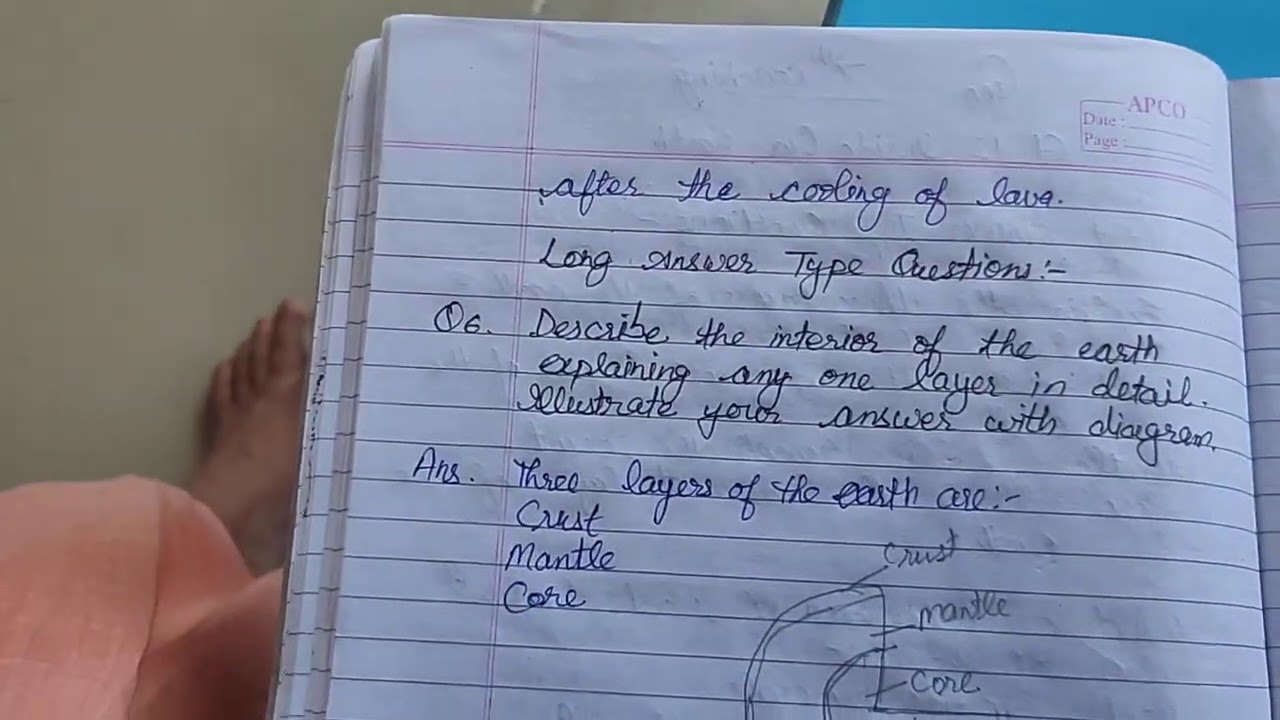 APCO
Date :
Page :
after the cooling of lava.
Long Answer Type Questions:-
Q6. Describe the interior of the earth
explaining any one layer in detail.
Illustrate your answer with diagram.
Ans. Three layers of the earth are:-
Crust
Mantle
Core
Crust
mantle
core